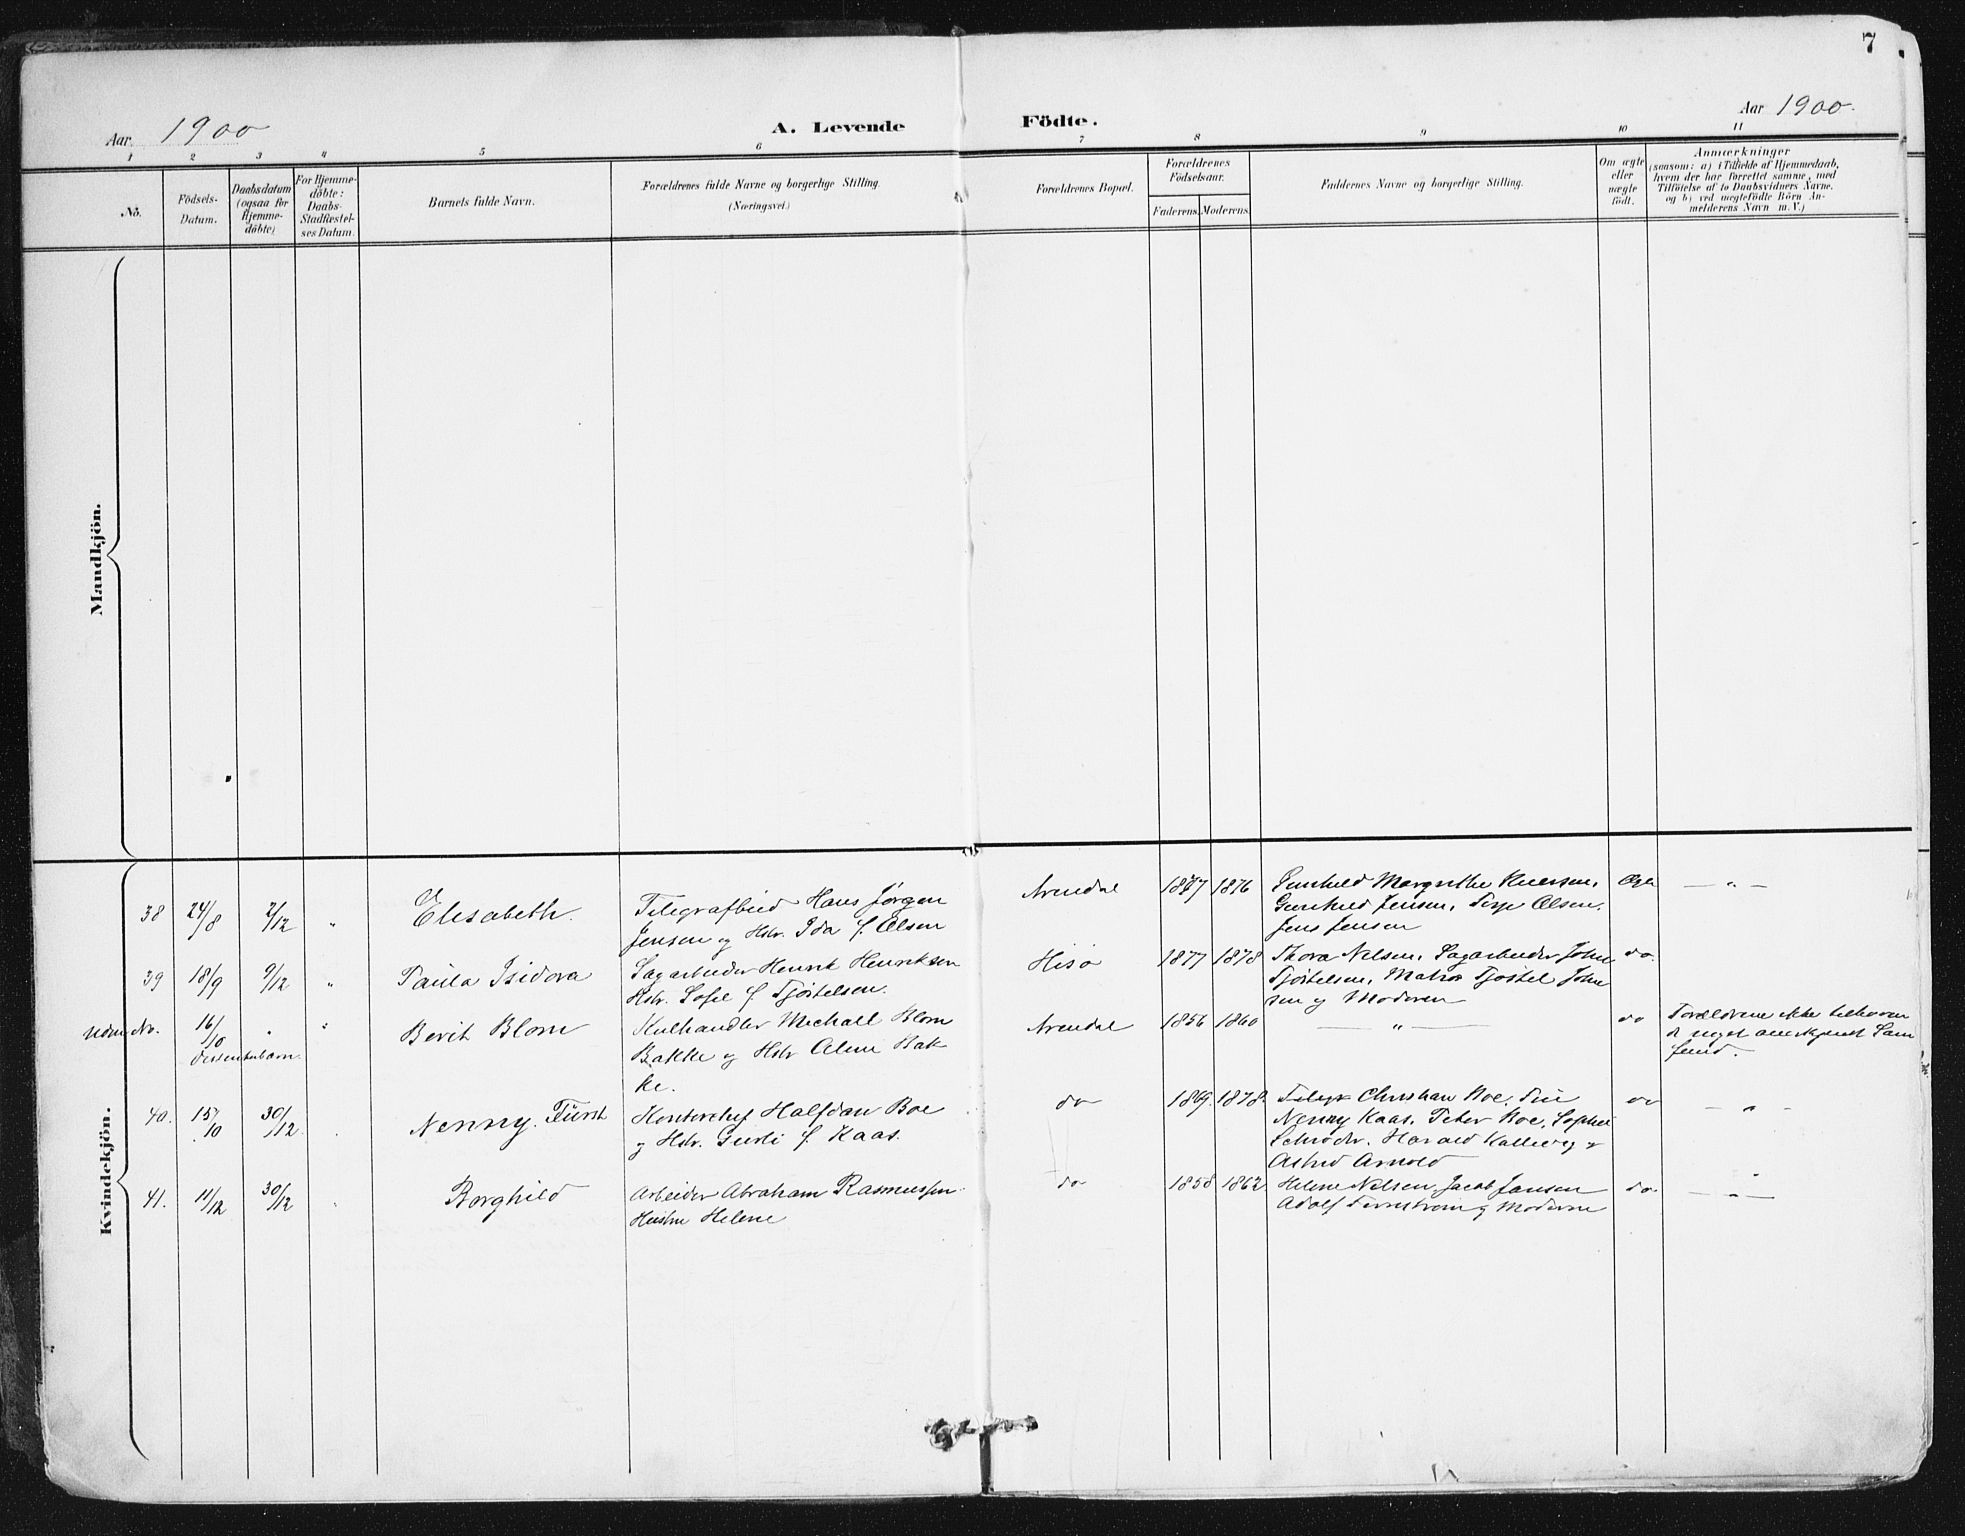 7
Aar 1900
A. Levende Födte.
Aar 1900.
1 2 3 4 5 6 7 8 9 10 11
No.
Födsels-Datum.
Daabsdatum (ogsaa for Hjemme-döbte)
For Hjemme-döbte: Daabs-Stadfæstel-ses Datum.
Barnets fulde Navn.
Forældrenes fulde Navne og borgerlige Stilling.
(Næringsvei.)
Forældrenes Bopæl.
Forældrenes Födselsaar.
Faderens. Moderens.
Faddernes Navne og borgerlige Stilling.
Om ægte eller uægte födt.
Anmærkninger
(saasom: a) i Tilfælde af Hjemmedaab, hvem der har forrettet samme, med Tilföielse af to Daabsvidners Navne, og b) ved uægtefödte Börn Anmelderens Navn m. V.)
Mandkjön.
Kvindekjön.
38 24/8 2/12 " Elisabeth. Telegrafbud Hans Jørgen Jensen og Hstr. Ida f. Olsen Arendal 1877 1876 Gunhild Margrethe Gunhild Jensen, Terje Olsen, Jens Jensen Ægte — " —
39 18/9 9/12 " Paula Isidora Sagarbeider Henrik Henriksen Hstr. Sofie f. Tjøstelsen. Hisø 1877 1878 Thora Nelsen, Sagarbeider John Tjøstelsen, Matros Tjøstel Johnsen og Moderen do.
Uden No. 16/10 " " Dissenterbarn. Berit Blom Kulhandler Michael Blom Bakke og Hstr Bakke. Arendal 1856 1860 — " — do Forældrene ikke tilhører noget anerkjendt Samfund.
40. 15/10 30/12 Nenny Fürst Kontorchef Halfdan Boe og Hstr. f. Kaas. do 1869. 1878. Christian Boe, Nenny Kaas, Peter Boe, Sophie Schrøder, Harald Kallevig & Astrid Arnold do — " —
41. 11/12 30/12 " Borghild Arbeider Abraham Rasmussen Hustru Helene do 1858 1862 Helene Nelsen, Jacob Jansen Adolf og Moderen do. — " —